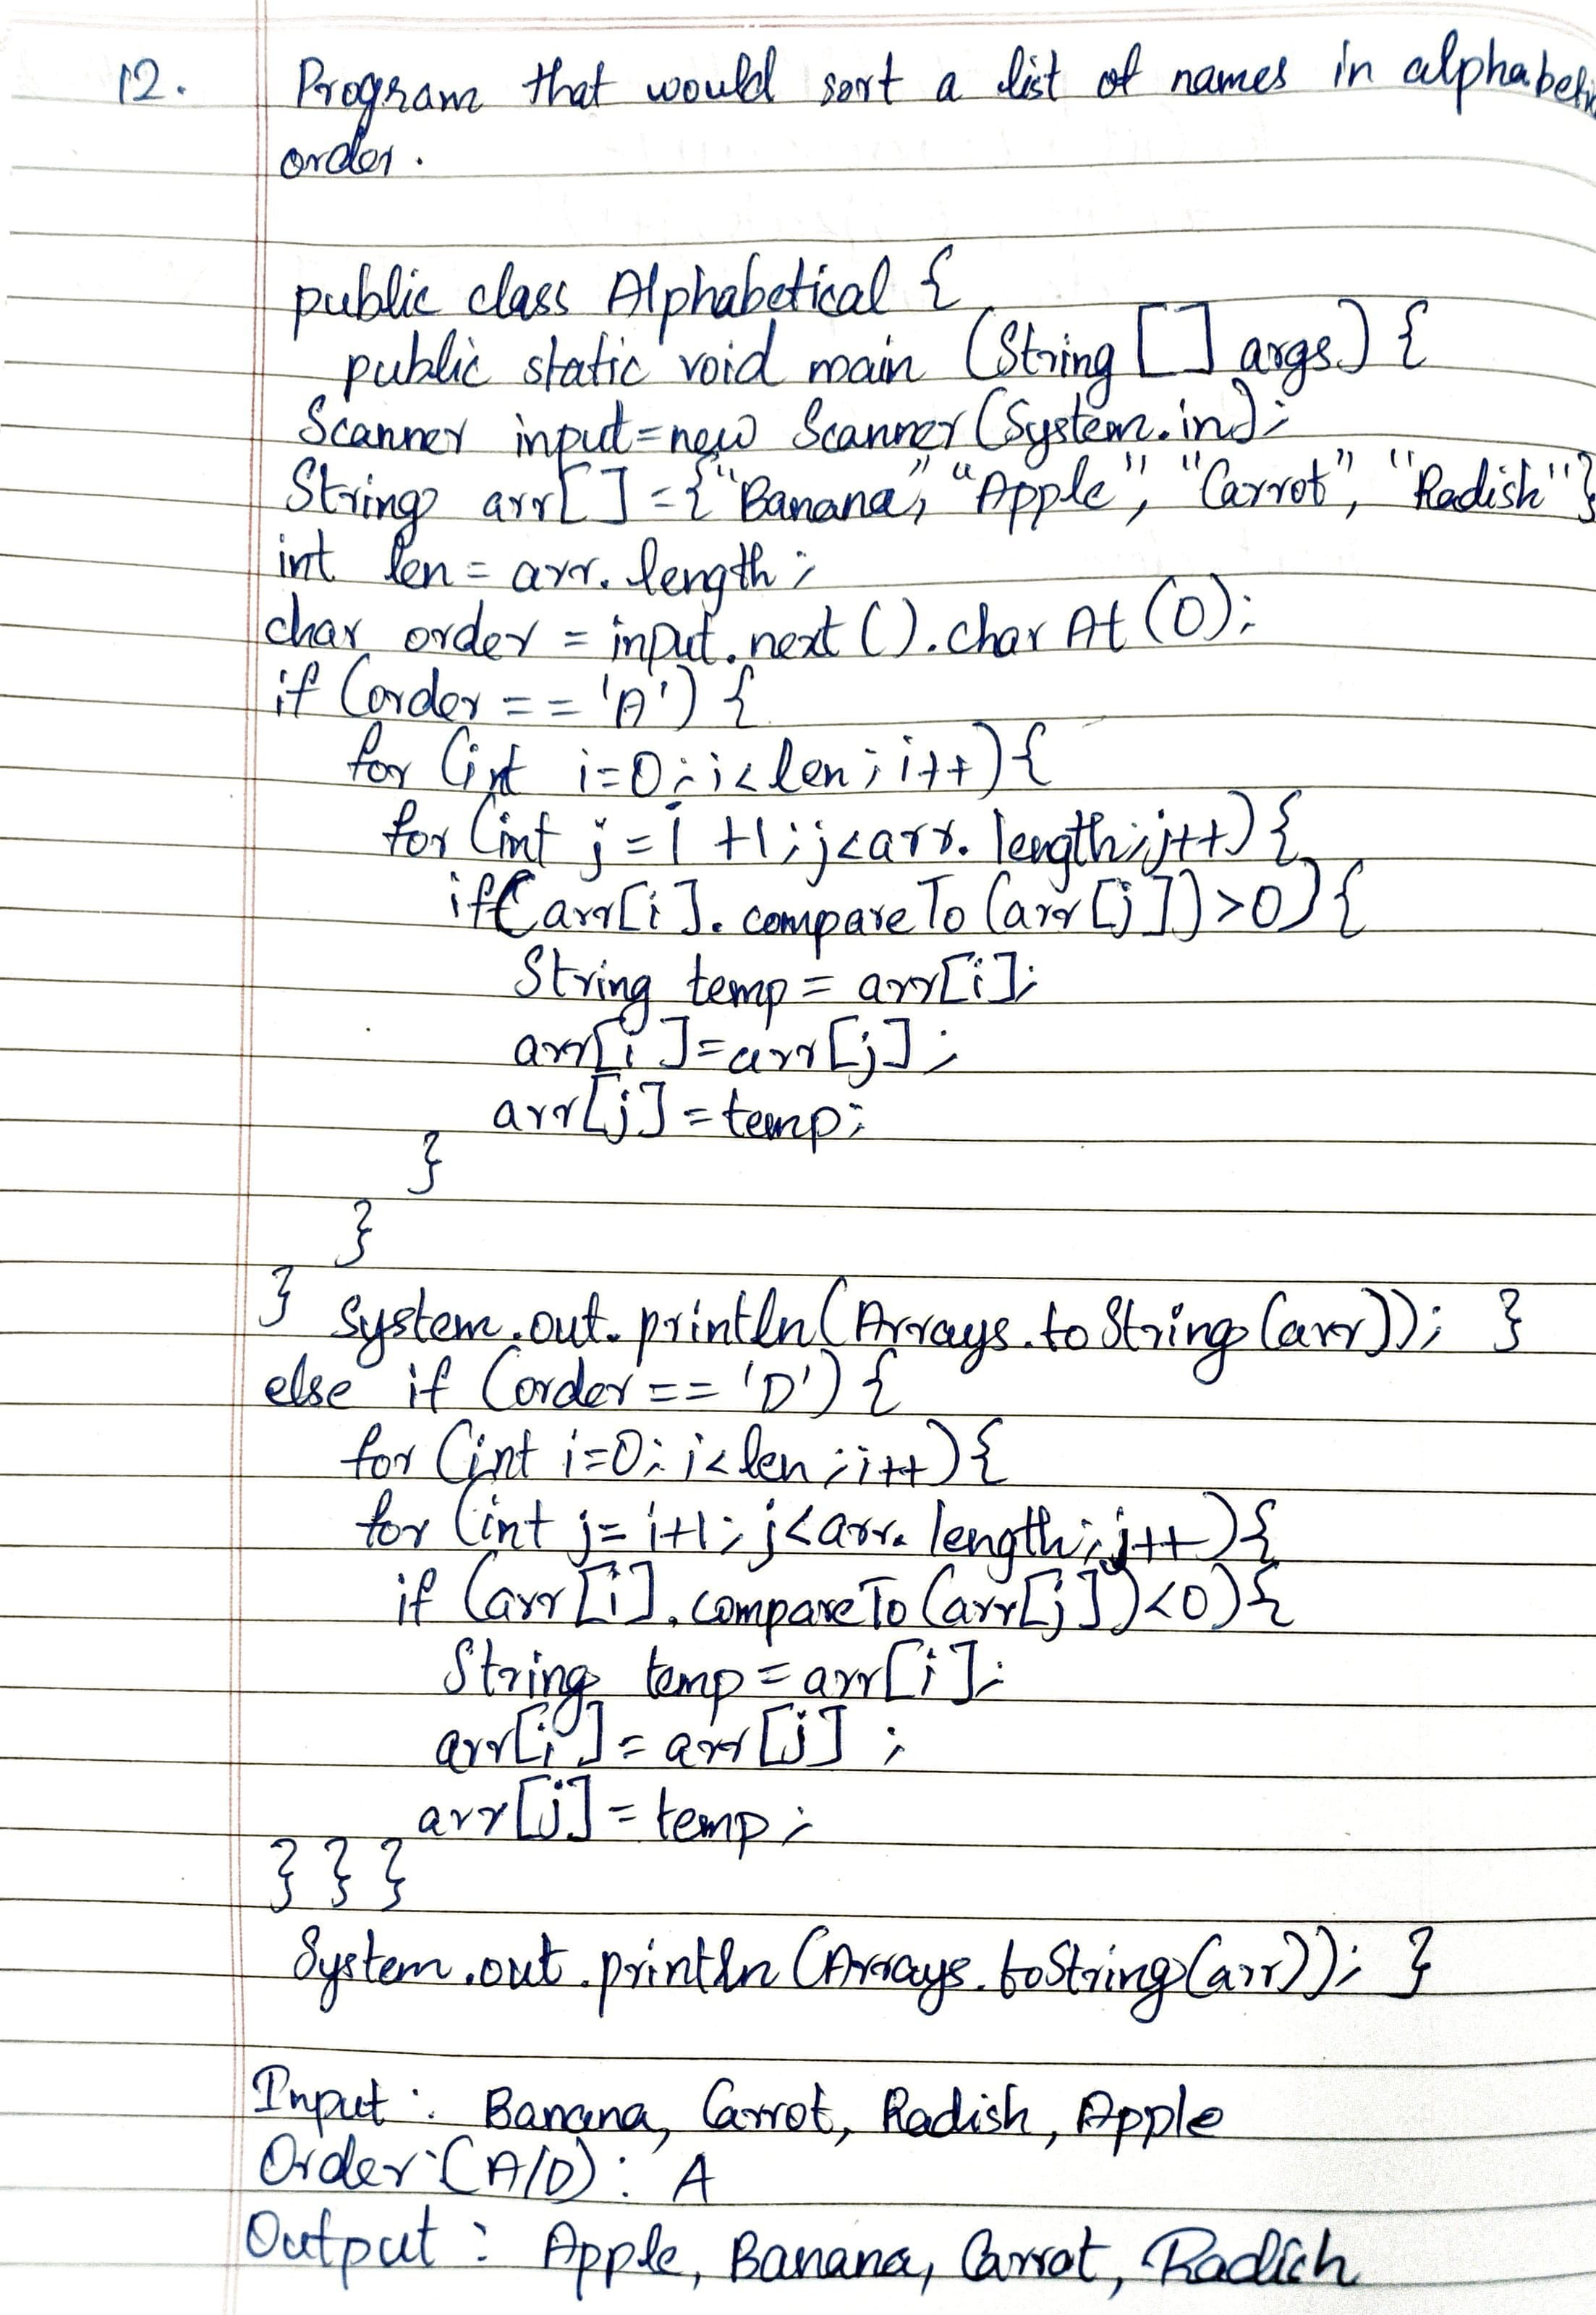 12. Program that would sort a list of names in alphabeti
order.
public class Alphabetical {
public static void main (String [] args) {
Scanner input=new Scanner(System.in);
String arr[] = {"Banana", "Apple", "Carrot", "Radish"}
int len = arr.length;
char order = input.next().charAt(0);
if (order == 'A') {
for (int i=0; i<len; i++){
for (int j = i +1; j<arr.length; j++) {
if(arr[i].compareTo(arr[j])>0){
String temp = arr[i];
arr[i]=arr[j];
arr[j]=temp;
}
}
} System.out.println(Arrays.toString(arr)); }
else if (order == 'D') {
for (int i=0; i<len; i++){
for (int j= i+1; j<arr.length; j++){
if (arr[i].compareTo(arr[j])<0){
String temp = arr[i];
arr[i] = arr[j] ;
arr[j] = temp;
} } }
System.out.println(Arrays.toString(arr)); }
Input : Banana, Carrot, Radish, Apple
Order (A/D) : A
Output : Apple, Banana, Carrot, Radish